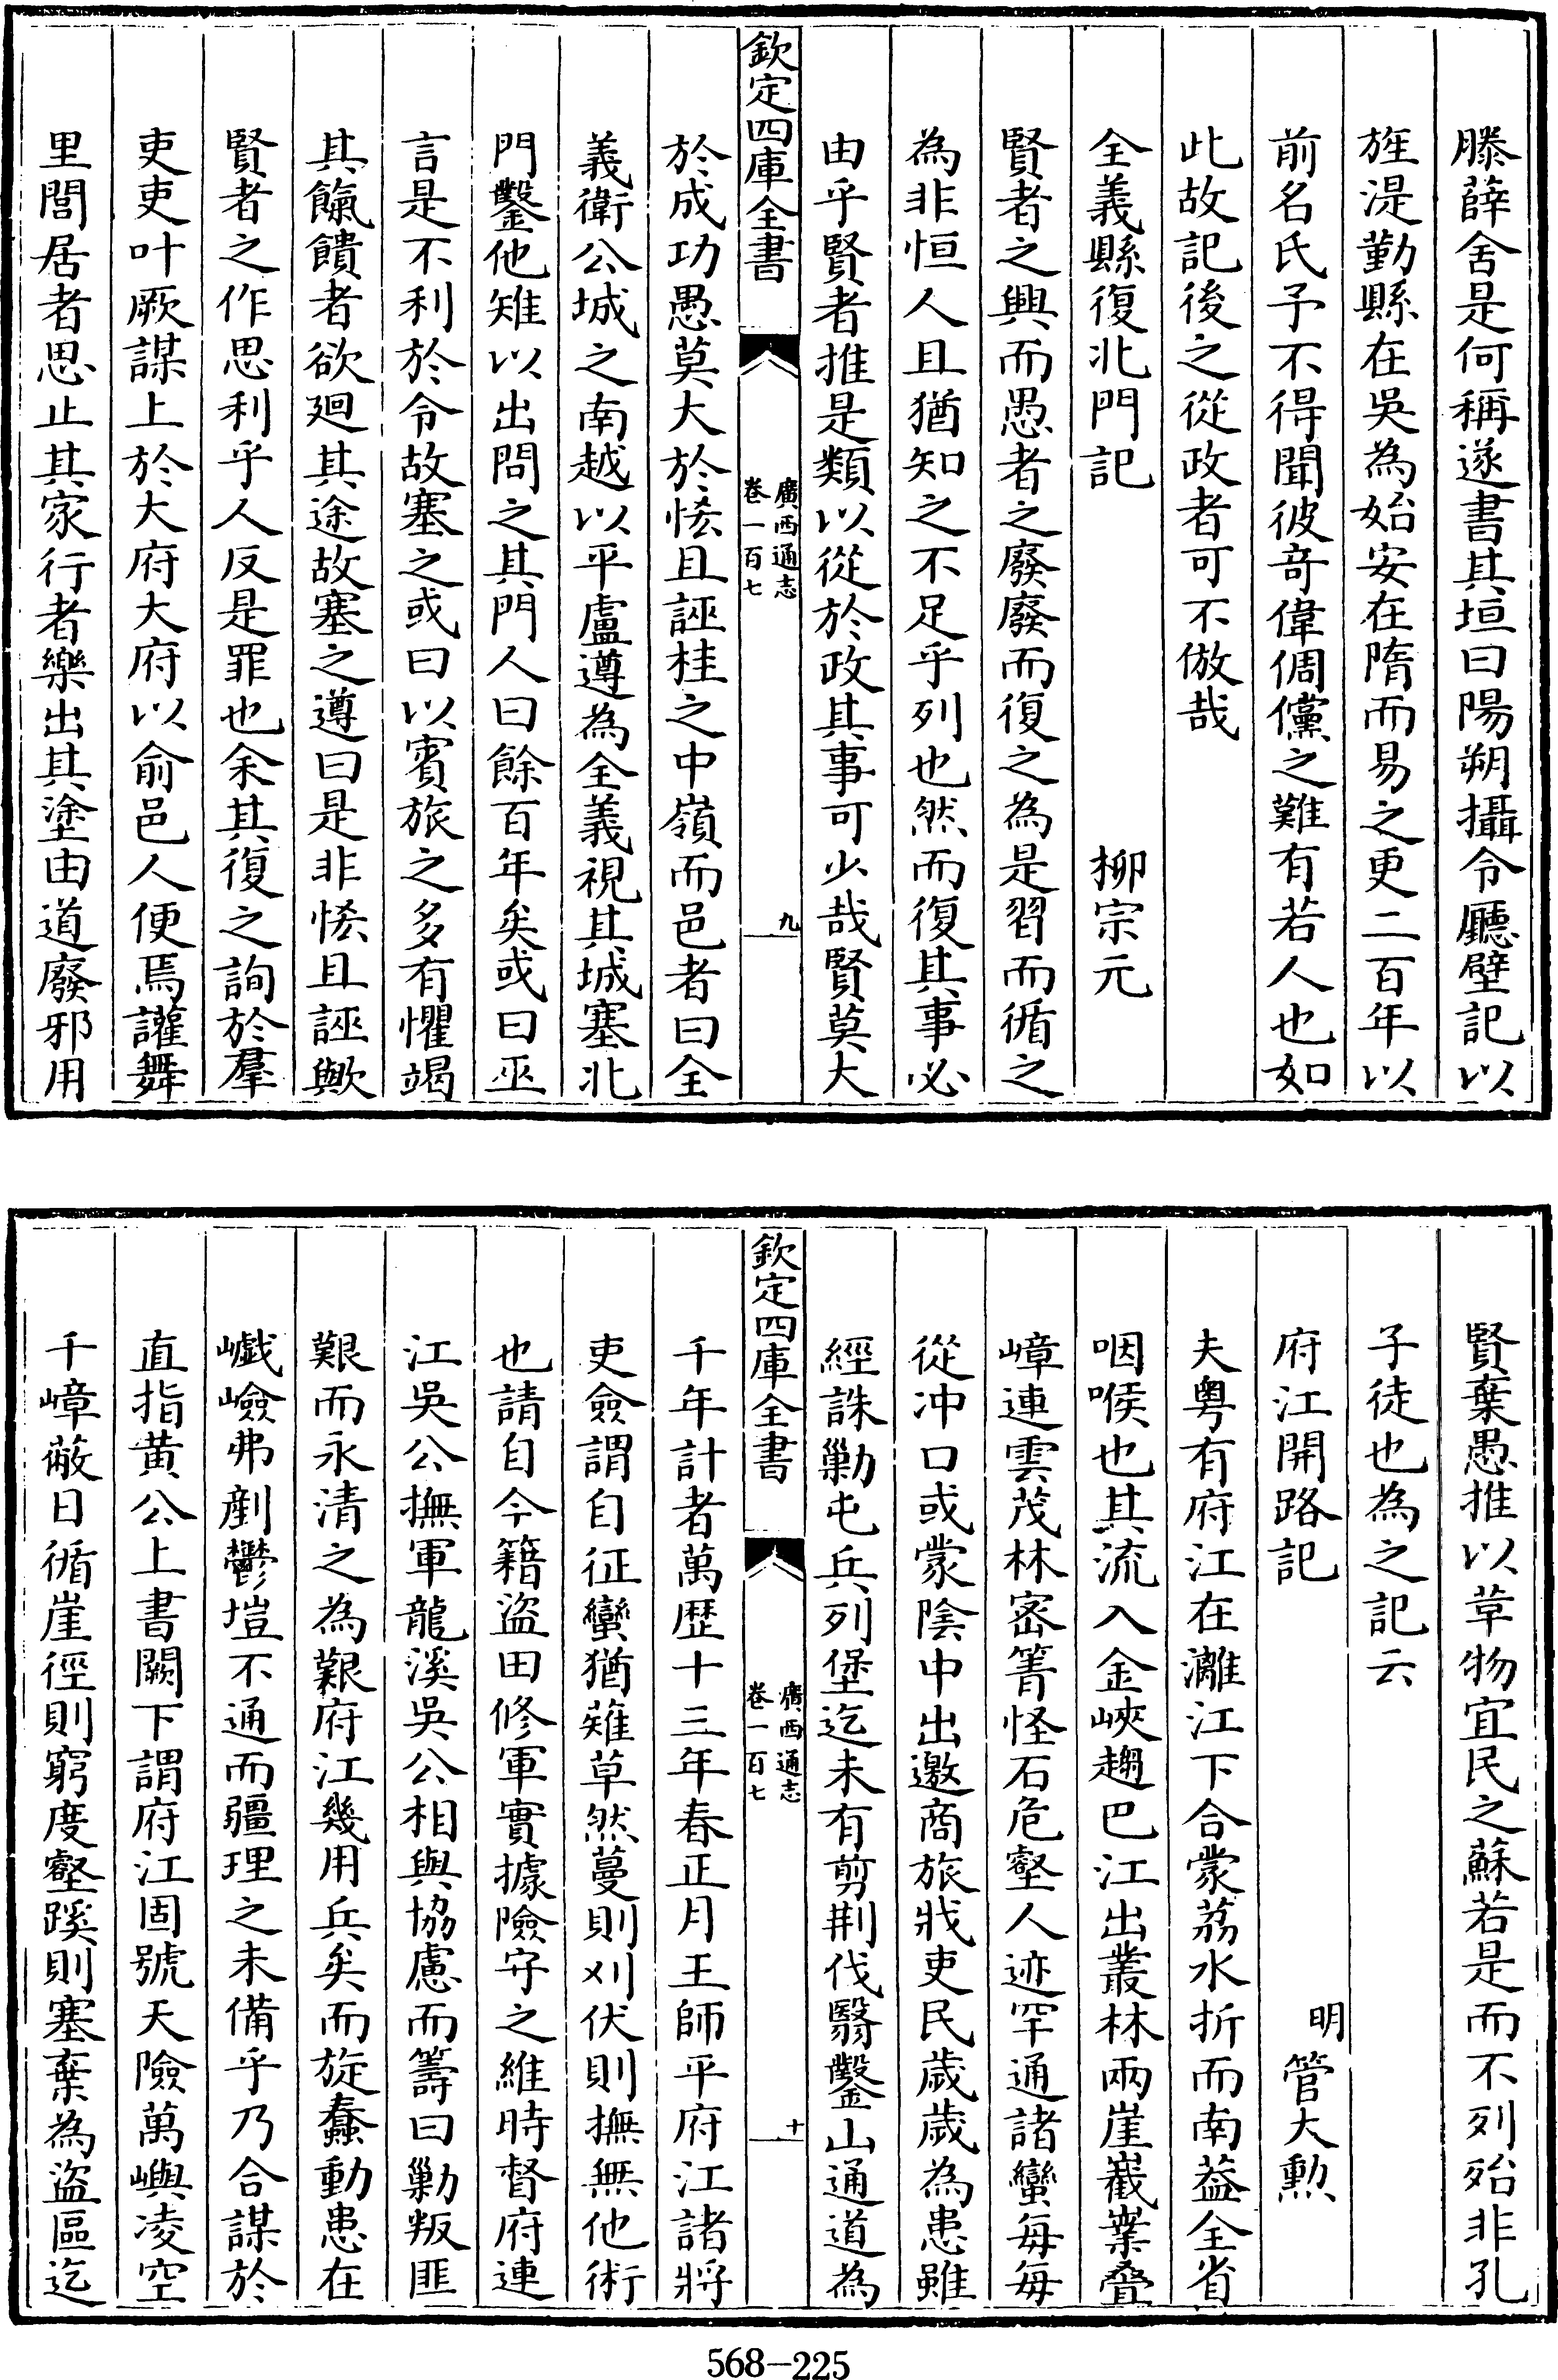 滕薛舍是何稱遂書其垣曰陽朔攝令廳壁記以
旌湜勤縣在吳為始安在隋而易之更二百年以
前名氏予不得聞彼竒偉倜儻之難有若人也如
此故記後之從政者可不倣哉
全義縣復北門記 柳宗元
賢者之興而愚者之廢廢而復之為是習而循之
為非恒人且猶知之不足乎列也然而復其事必
由乎賢者推是類以從於政其事可少哉賢莫大
欽定四庫全書
廣西通志
卷一百七
九
於成功愚莫大於恡且誣桂之中嶺而邑者曰全
義衛公城之南越以平盧遵為全義視其城塞北
門鑿他雉以出問之其門人曰餘百年矣或曰巫
言是不利於令故塞之或曰以賓旅之多有懼竭
其餼饋者欲廻其途故塞之遵曰是非恡且誣歟
賢者之作思利乎人反是罪也余其復之詢於羣
吏吏叶厥謀上於大府大府以俞邑人便焉讙舞
里閭居者思止其家行者樂出其塗由道廢邪用
賢棄愚推以革物宜民之蘇若是而不列殆非孔
子徒也為之記云
府江開路記 明 管大勲
夫粤有府江在灕江下合蒙荔水折而南葢全省
咽喉也其流入金峽趨巴江出叢林兩崖嶻嶪疊
嶂連雲茂林宻箐怪石危壑人迹罕通諸蠻每每
從冲口或蒙陰中出邀商旅戕吏民歲歲為患雖
經誅勦屯兵列堡迄未有剪荆伐翳鑿山通道為
欽定四庫全書
廣西通志
卷一百七
十
千年計者萬歴十三年春正月王師平府江諸將
吏僉謂自征蠻猶薙草然蔓則刈伏則撫無他術
也請自今籍盜田修軍實據險守之維時督府連
江吳公撫軍龍溪吳公相與協慮而籌曰勦叛匪
艱而永清之為艱府江幾用兵矣而旋蠢動患在
巇嶮弗剷鬱塏不通而疆理之未備乎乃合謀於
直指黄公上書闕下謂府江固號天險萬嶼凌空
千嶂蔽日循崖徑則窮度壑蹊則塞棄為盜區迄
568—225